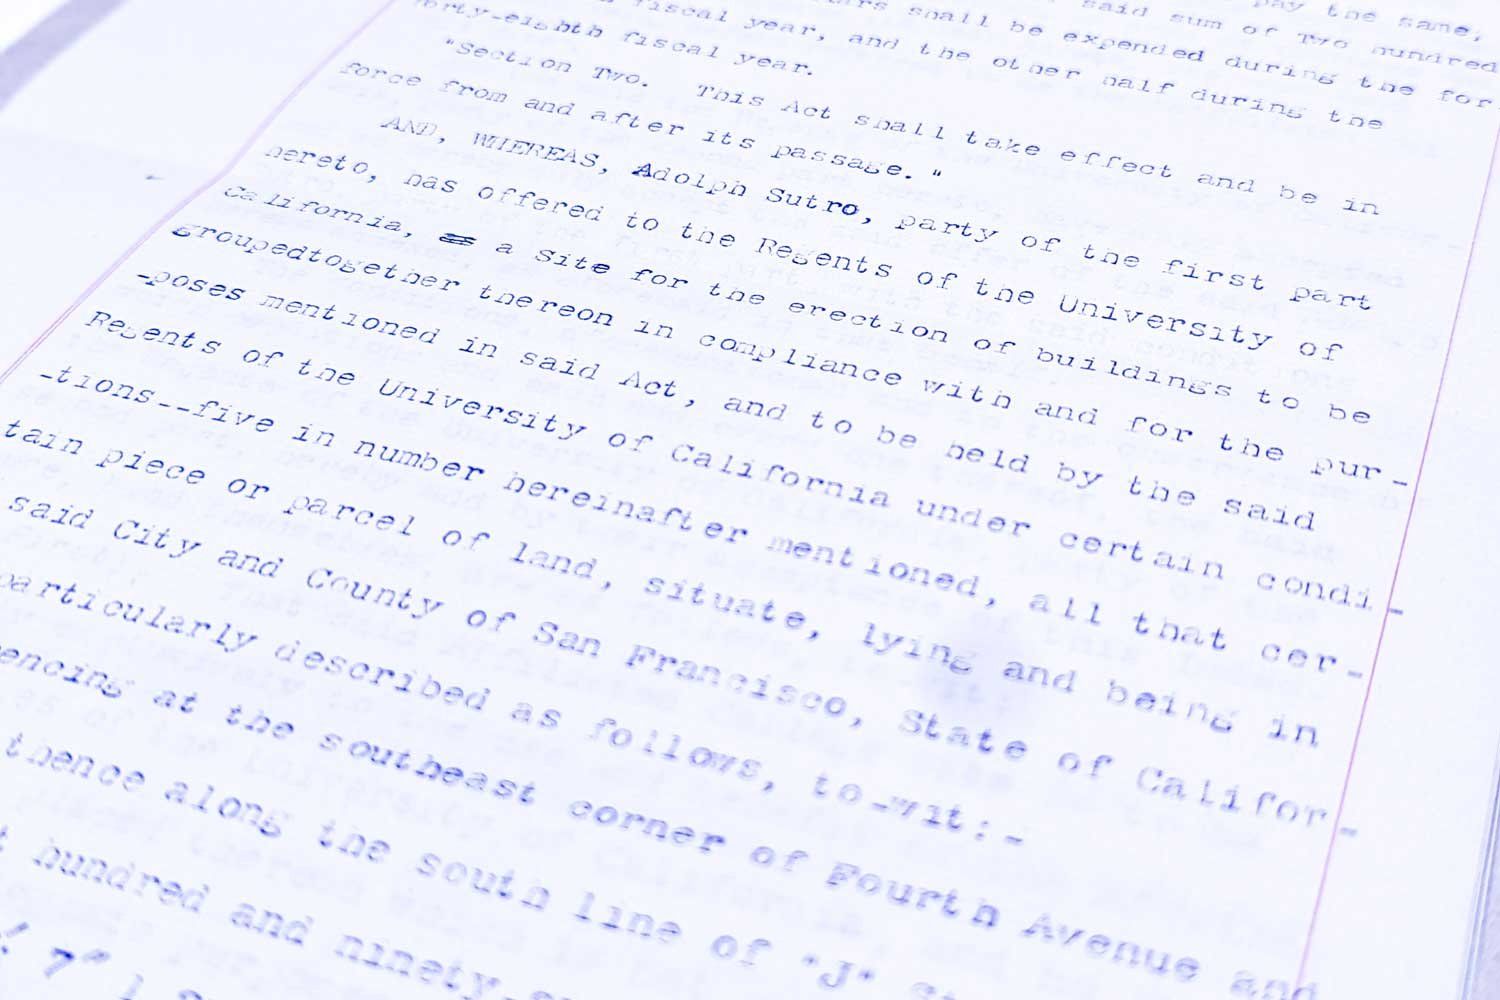 pay the same,
shall be expended said sum of Two hundred
fiscal year, and the other half during the for
forty-eighth fiscal year. during the
"Section Two. This Act shall take effect and be in
force from and after its passage."
AND, WHEREAS, Adolph Sutro, party of the first part
hereto, has offered to the Regents of the University of
California, a Site for the erection of buildings to be
groupedtogether thereon in compliance with and for the pur-
-poses mentioned in said Act, and to be held by the said
Regents of the University of California under certain condi-
-tions--five in number hereinafter mentioned, all that cer-
tain piece or parcel of land, situate, lying and being in
said City and County of San Francisco, State of Califor-
particularly described as follows, to-wit:-
encing at the southeast corner of Fourth Avenue and
thence along the south line of "J"
hundred and ninety-
7"